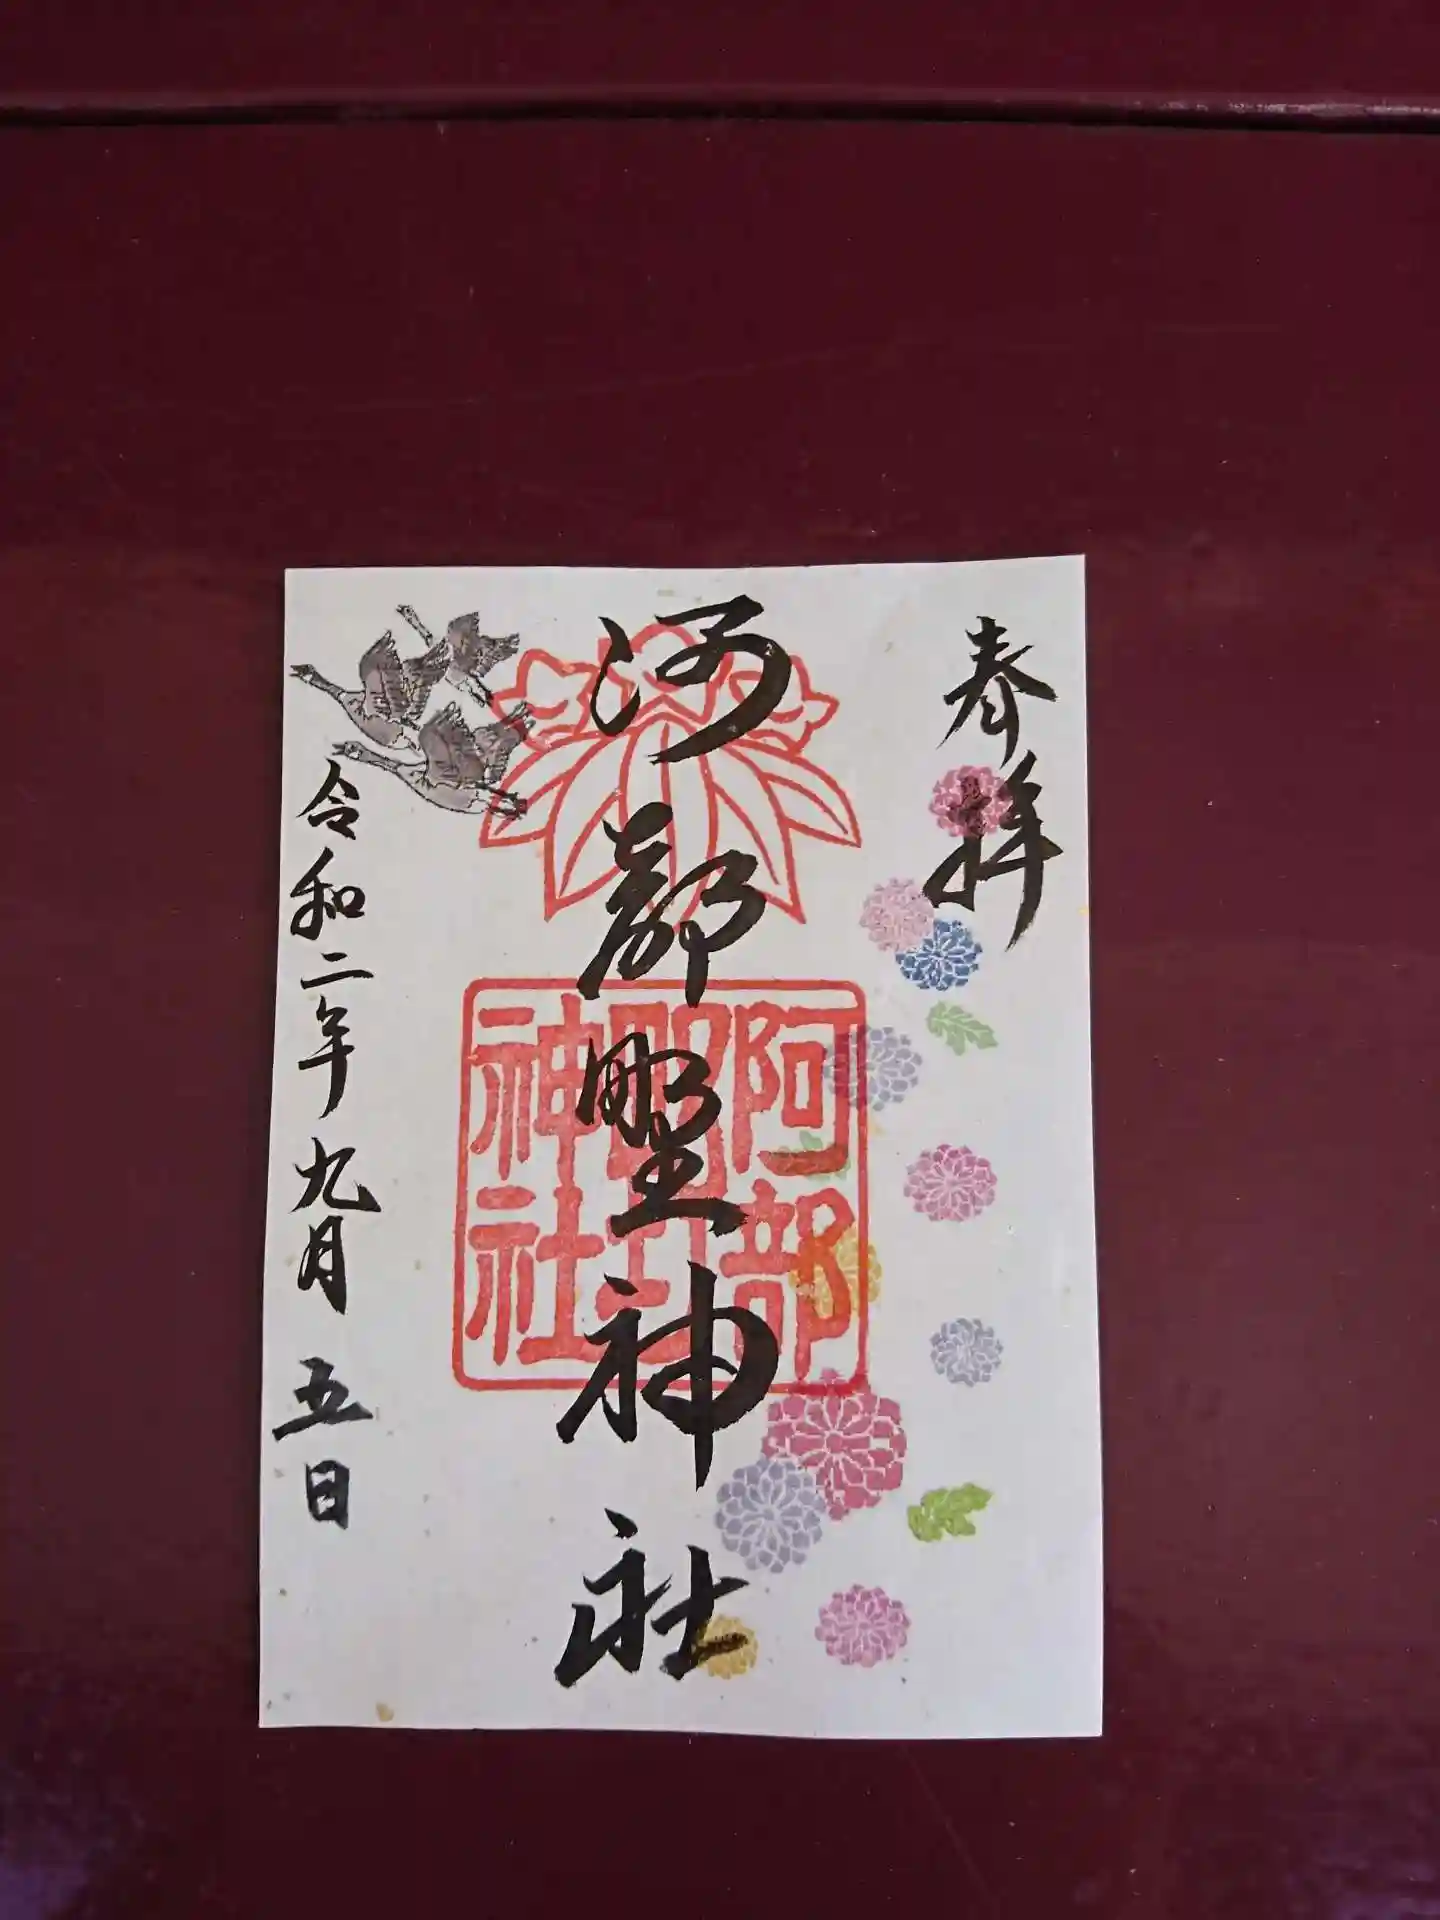 奉拝
阿部野神社
令和二年九月五日
阿部
野
神社